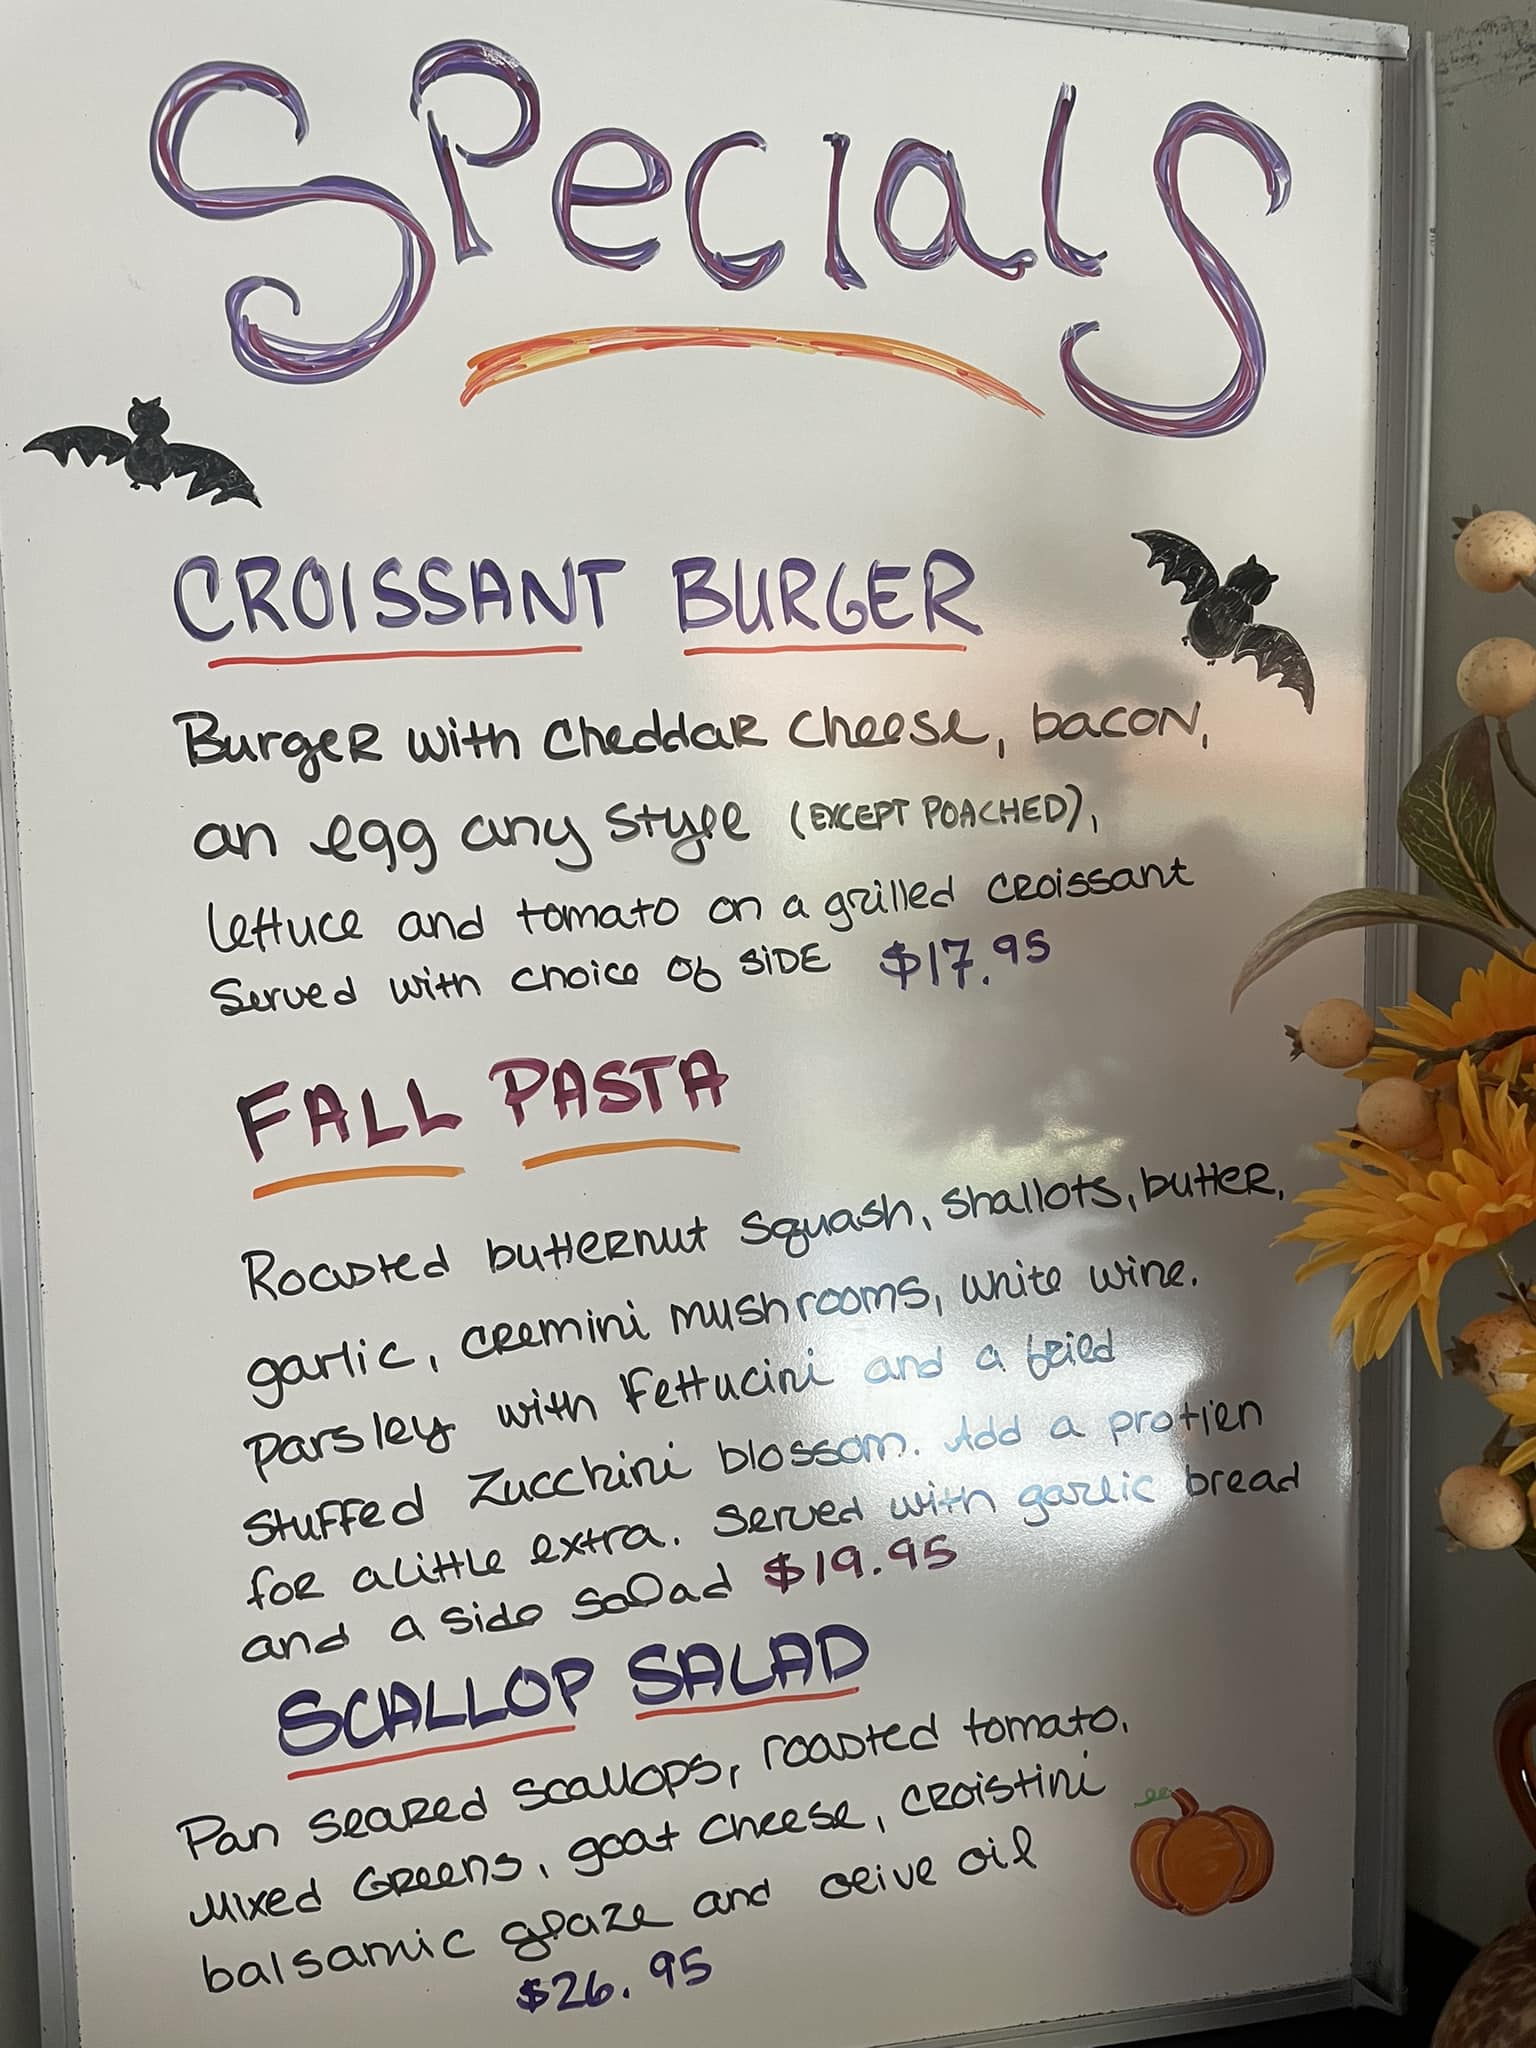 SPecialS
CROISSANT BURGER
Burger with Cheddar Cheese, bacon,
an egg any style (EXCEPT POACHED),
lettuce and tomato on a grilled croissant
Served with choice of SIDE $17.95
FALL PASTA
Roasted butternut squash, shallots, butter,
garlic, cremini mushrooms, white wine.
parsley with Fettucini and a fried
stuffed Zucchini blossom. Add a protien
for a little extra. Served with garlic bread
and a side salad $19.95
SCALLOP SALAD
Pan seared scallops, roasted tomato.
Mixed Greens, goat cheese, croistini
balsamic glaze and olive oil
$26.95